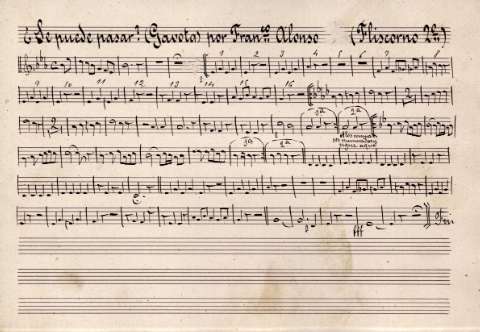 ¿Se puede pasar? (Gavota) por Fran.co Alonso (Fliscorno 2º)
1 2 3 4 5 6 7 8
9 10 11 12 13 14 15
1ª 2ª
1ª 2ª
fff Fin